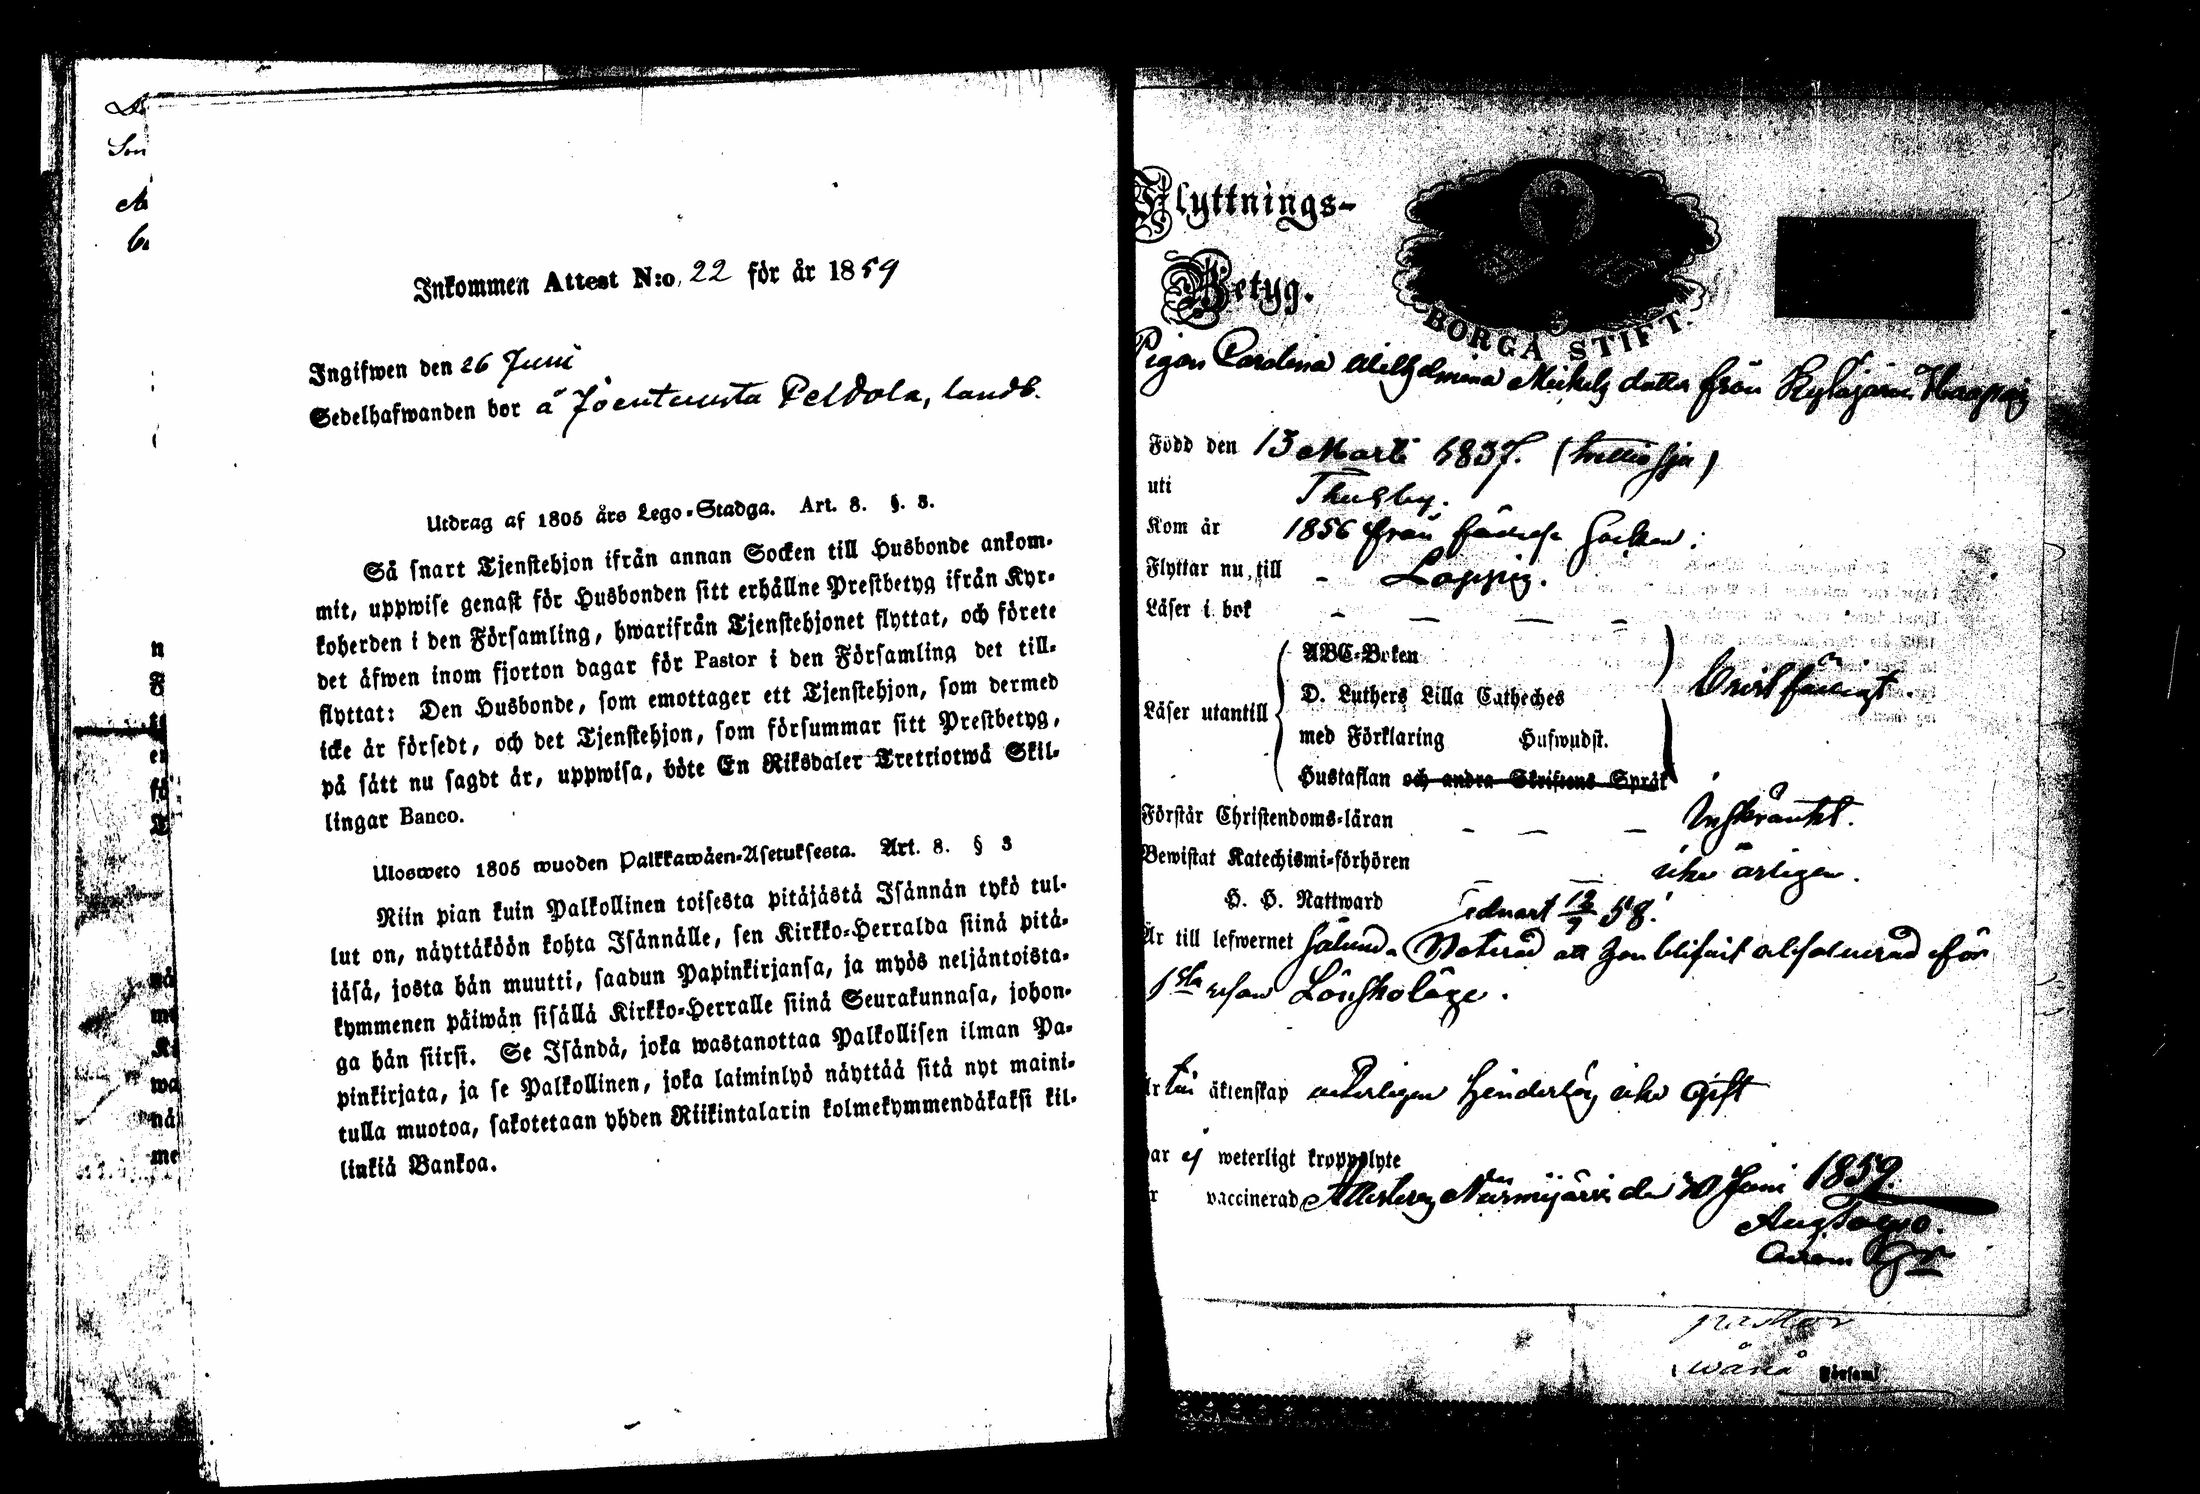 Inkommen Attest N:o 22 för år 1859
Ingifwen den 26 Juni
Sedelhafwanden bor å Joentausta Peldola, landb.
Utdrag af 1805 års Lego-Stadga. Art. 8. §. 3.
Så snart Tjenstehjon ifrån annan Socken till Husbonde ankom-
mit, uppwise genast för Husbonden sitt erhållne Prestbetyg ifrån Kyr-
koherden i den Församling, hwarifrån Tjenstehjonet flyttat, och förete
det äfwen inom fjorton dagar för Pastor i den Församling det till-
flyttat: Den Husbonde, som emottager ett Tjenstehjon, som dermed
icke är försedt, och det Tjenstehjon, som försummar sitt Prestbetyg,
på sätt nu sagdt är, uppwisa, böte En Riksdaler Trettiotwå Skil-
lingar Banco.
Ulosweto 1805 wuoden Palkkawäen-Asetuksesta. Art. 8. § 3
Niin pian kuin Palkollinen toisesta pitäjästä Isännän tykö tul-
lut on, näyttäköön kohta Isännälle, sen Kirkko-Herralda siinä pitä-
jäsä, josta hän muutti, saadun Papinkirjansa, ja myös neljäntoista-
kymmenen päiwän sisällä Kirkko-Herralle siinä Seurakunnasa, johon-
ga hän siirsi. Se Isändä, joka wastanottaa Palkollisen ilman Pa-
pinkirjata, ja se Palkollinen, joka laiminlyö näyttää sitä nyt maini-
tulla muotoa, sakotetaan yhden Riikintalarin kolmekymmendäkaksi kil-
linkiä Bankoa.
Flyttnings-
Betyg.
BORGÅ STIFT.
Pigan Carolina Wilhelmina Mickels dotter från Kytäjärvi
Född den 13 Martii 1837.
uti Thusby.
Kom år 1856 från Socken.
Flyttar nu till - Loppis.
Läser i bok - - - -
Läser utantill
ABC-Boken
D. Luthers Lilla Catheches
med Förklaring Hufwudst.
Hustaflan och andra Skriftens Språk
Förstår Christendoms-läran - - - Inskränkt.
Bewistat Katechismi-förhören - - icke årligen.
H. H. Nattward 58.
Är till lefwernet Noterad att hon blifvit för
1sta resan Lönskaläge.
äktenskap weterligen hinderlös icke gift
ej weterligt kroppslyte
vaccinerad Attesteras Nurmijärvi den 20 Juni 1859.
Församl